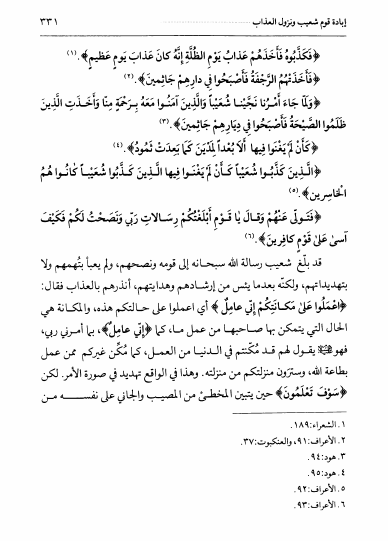 إبادة قوم شعيب ونزول العذاب ........................ ٣٣١
﴿فَكَذَّبُوهُ فَأَخَذَهُمْ عَذابُ يَوْمِ الظُّلَّةِ إِنَّهُ كانَ عَذابَ يَومٍ عَظيمٍ﴾.(١)
﴿فَأَخَذَتْهُمُ الرَّجْفَةُ فَأَصْبَحُوا فِي دارِهِمْ جاثِمينَ﴾.(٢)
﴿وَلَمَّا جَاءَ أَمْرُنا نَجَّيْنا شُعَيْباً وَالَّذِينَ آمَنُوا مَعَهُ بِرَحْمَةٍ مِنَّا وَأَخَذَتِ الَّذِينَ
ظَلَمُوا الصَّيْحَةُ فَأَصْبَحُوا فِي دِيَارِهِمْ جاثِمينَ﴾.(٣)
﴿كَأَنْ لَمْ يَغْنَوْا فِيها أَلاَ بُعْداً لِمَدْيَنَ كَمَا بَعِدَتْ ثَمُودُ﴾.(٤)
﴿الَّذِينَ كَذَّبُوا شُعَيْباً كَأَنْ لَمْ يَغْنَوْا فِيها الَّذِينَ كَذَّبُوا شُعَيْباً كَانُوا هُمُ
الْخَاسِرينَ﴾.(٥)
﴿فَتَوَلَّى عَنْهُمْ وَقالَ يا قَوْمِ أَبْلَغْتُكُمْ رِسَالاتِ رَبِّي وَنَصَحْتُ لَكُمْ فَكَيْفَ
آسىٰ عَلىٰ قَوْمٍ كافِرينَ﴾.(٦)
قد بلّغ شعيب رسالة الله سبحانه إلى قومه ونصحهم، ولم يعبأ بتُهمهم ولا
بتهديداتهم، ولكنّه بعدما يئس من إرشادهم وهدايتهم، أنذرهم بالعذاب فقال:
﴿اعْمَلُوا عَلىٰ مَكانَتِكُمْ إِنِّي عامِلٌ﴾ أي اعملوا على حالتكم هذه، والمكانة هي
الحال التي يتمكن بها صاحبها من عمل ما، كما ﴿إِنِّي عامِلٌ﴾، بما أمرني ربي،
فهو ﷺ يقول لهم قد مُكّنتم في الدنيا من العمل، كما مُكِّن غيركم ممن عمل
بطاعة الله، وسترون منزلتكم من منزلته. وهذا في الواقع تهديد في صورة الأمر. لكن
﴿سَوْفَ تَعْلَمُونَ﴾ حين يتبين المخطئ من المصيب والجاني على نفسه من
١. الشعراء:١٨٩.
٢. الأعراف:٩١، والعنكبوت:٣٧.
٣. هود:٩٤.
٤. هود:٩٥.
٥. الأعراف:٩٢.
٦. الأعراف:٩٣.